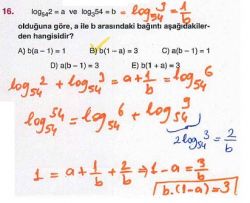 16. log₅₄2 = a ve log₃54 = b ⇒ log₅₄3 = 1/b
olduğuna göre, a ile b arasındaki bağıntı aşağıdakiler-
den hangisidir?
A) b(a – 1) = 1 B) b(1 – a) = 3 C) a(b – 1) = 1
D) a(b – 1) = 3 E) b(1 + a) = 3
log₅₄2 + log₅₄3 = a + 1/b = log₅₄6
log₅₄54 = log₅₄6 + log₅₄9
2log₅₄3 = 2/b
1 = a + 1/b + 2/b ⇒ 1 - a = 3/b
b.(1-a) = 3